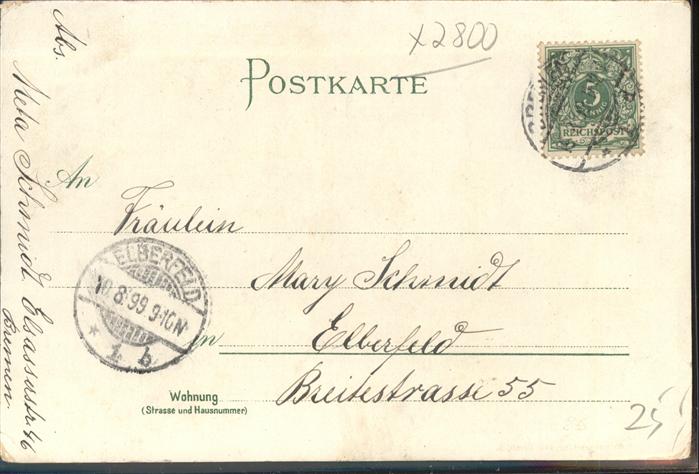 x2800
POSTKARTE
5
REICHSPOST
BREMEN
Abs. Meta Schmidt, Elsasserstr. 46
Bremen
An
Fräulein
Mary Schmidt
in Elberfeld
Breitestrasse 55
Wohnung
(Strasse und Hausnummer)
ELBERFELD
10.8.99 9-10N
* 1 b
25,